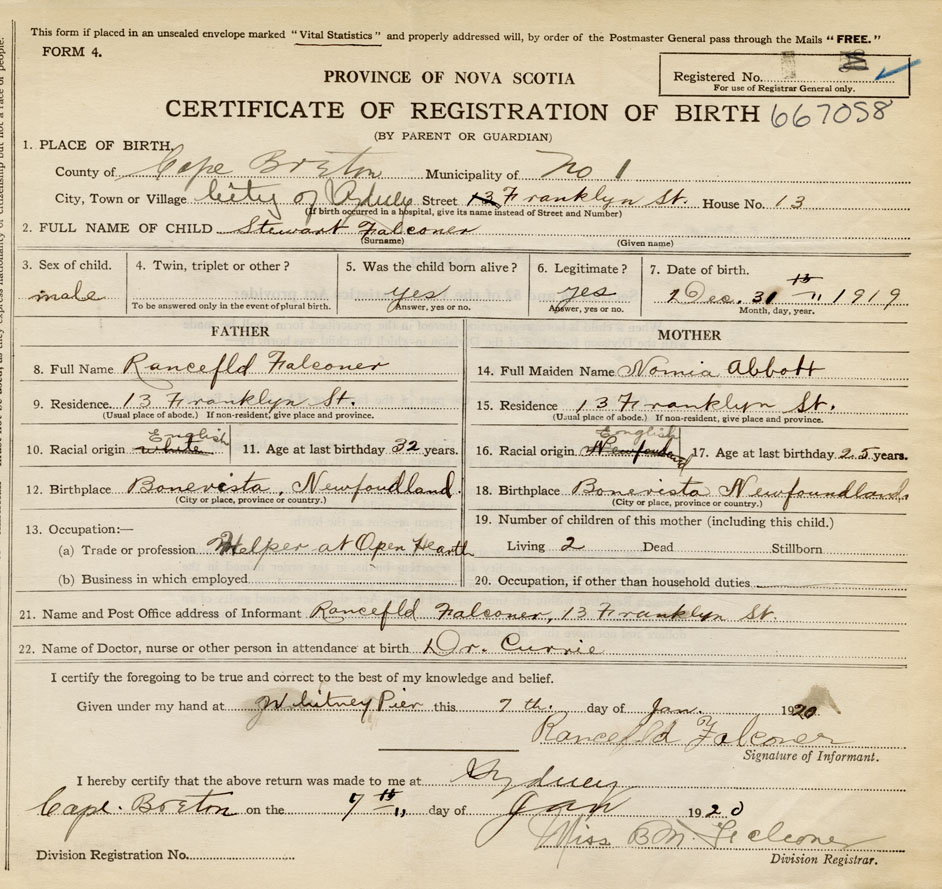 This form if placed in an unsealed envelope marked "Vital Statistics" and properly addressed will, by order of the Postmaster General pass through the Mails "FREE."
FORM 4.
PROVINCE OF NOVA SCOTIA
Registered No.
For use of Registrar General only.
CERTIFICATE OF REGISTRATION OF BIRTH 667058
(BY PARENT OR GUARDIAN)
1. PLACE OF BIRTH.
County of Cape Breton Municipality of No 1
City, Town or Village City of Sydney Street 13 Franklyn St. House No. 13
(If birth occurred in a hospital, give its name instead of Street and Number)
2. FULL NAME OF CHILD Stewart Falconer
(Surname) (Given name)
3. Sex of child. 4. Twin, triplet or other? 5. Was the child born alive? 6. Legitimate? 7. Date of birth.
male yes yes Dec. 31 1919
To be answered only in the event of plural birth. Answer, yes or no. Answer, yes or no. Month, day, year.
FATHER MOTHER
8. Full Name Rancefld Falconer 14. Full Maiden Name Nomia Abbott
9. Residence. 13 Franklyn St. 15. Residence 13 Franklyn St.
(Usual place of abode.) If non-resident, give place and province. (Usual place of abode.) If non-resident, give place and province.
English English
10. Racial origin white 11. Age at last birthday 32 years. 16. Racial origin 17. Age at last birthday 25 years.
12. Birthplace Bonevista, Newfoudland. 18. Birthplace Bonevista Newfoundland.
(City or place, province or country.) (City or place, province or country.)
13. Occupation:— 19. Number of children of this mother (including this child.)
(a) Trade or profession Helper at Open Hearth Living 2 Dead Stillborn
(b) Business in which employed 20. Occupation, if other than household duties
21. Name and Post Office address of Informant Rancefld Falconer, 13 Franklyn St.
22. Name of Doctor, nurse or other person in attendance at birth Dr. Currie
I certify the foregoing to be true and correct to the best of my knowledge and belief.
Given under my hand at Whitney Pier this 7th. day of Jan. 1920
Rancefld Falconer
Signature of Informant.
I hereby certify that the above return was made to me at Sydney
Cape Breton on the 7th day of Jan 1920
Miss B.M.
Division Registration No. Division Registrar.